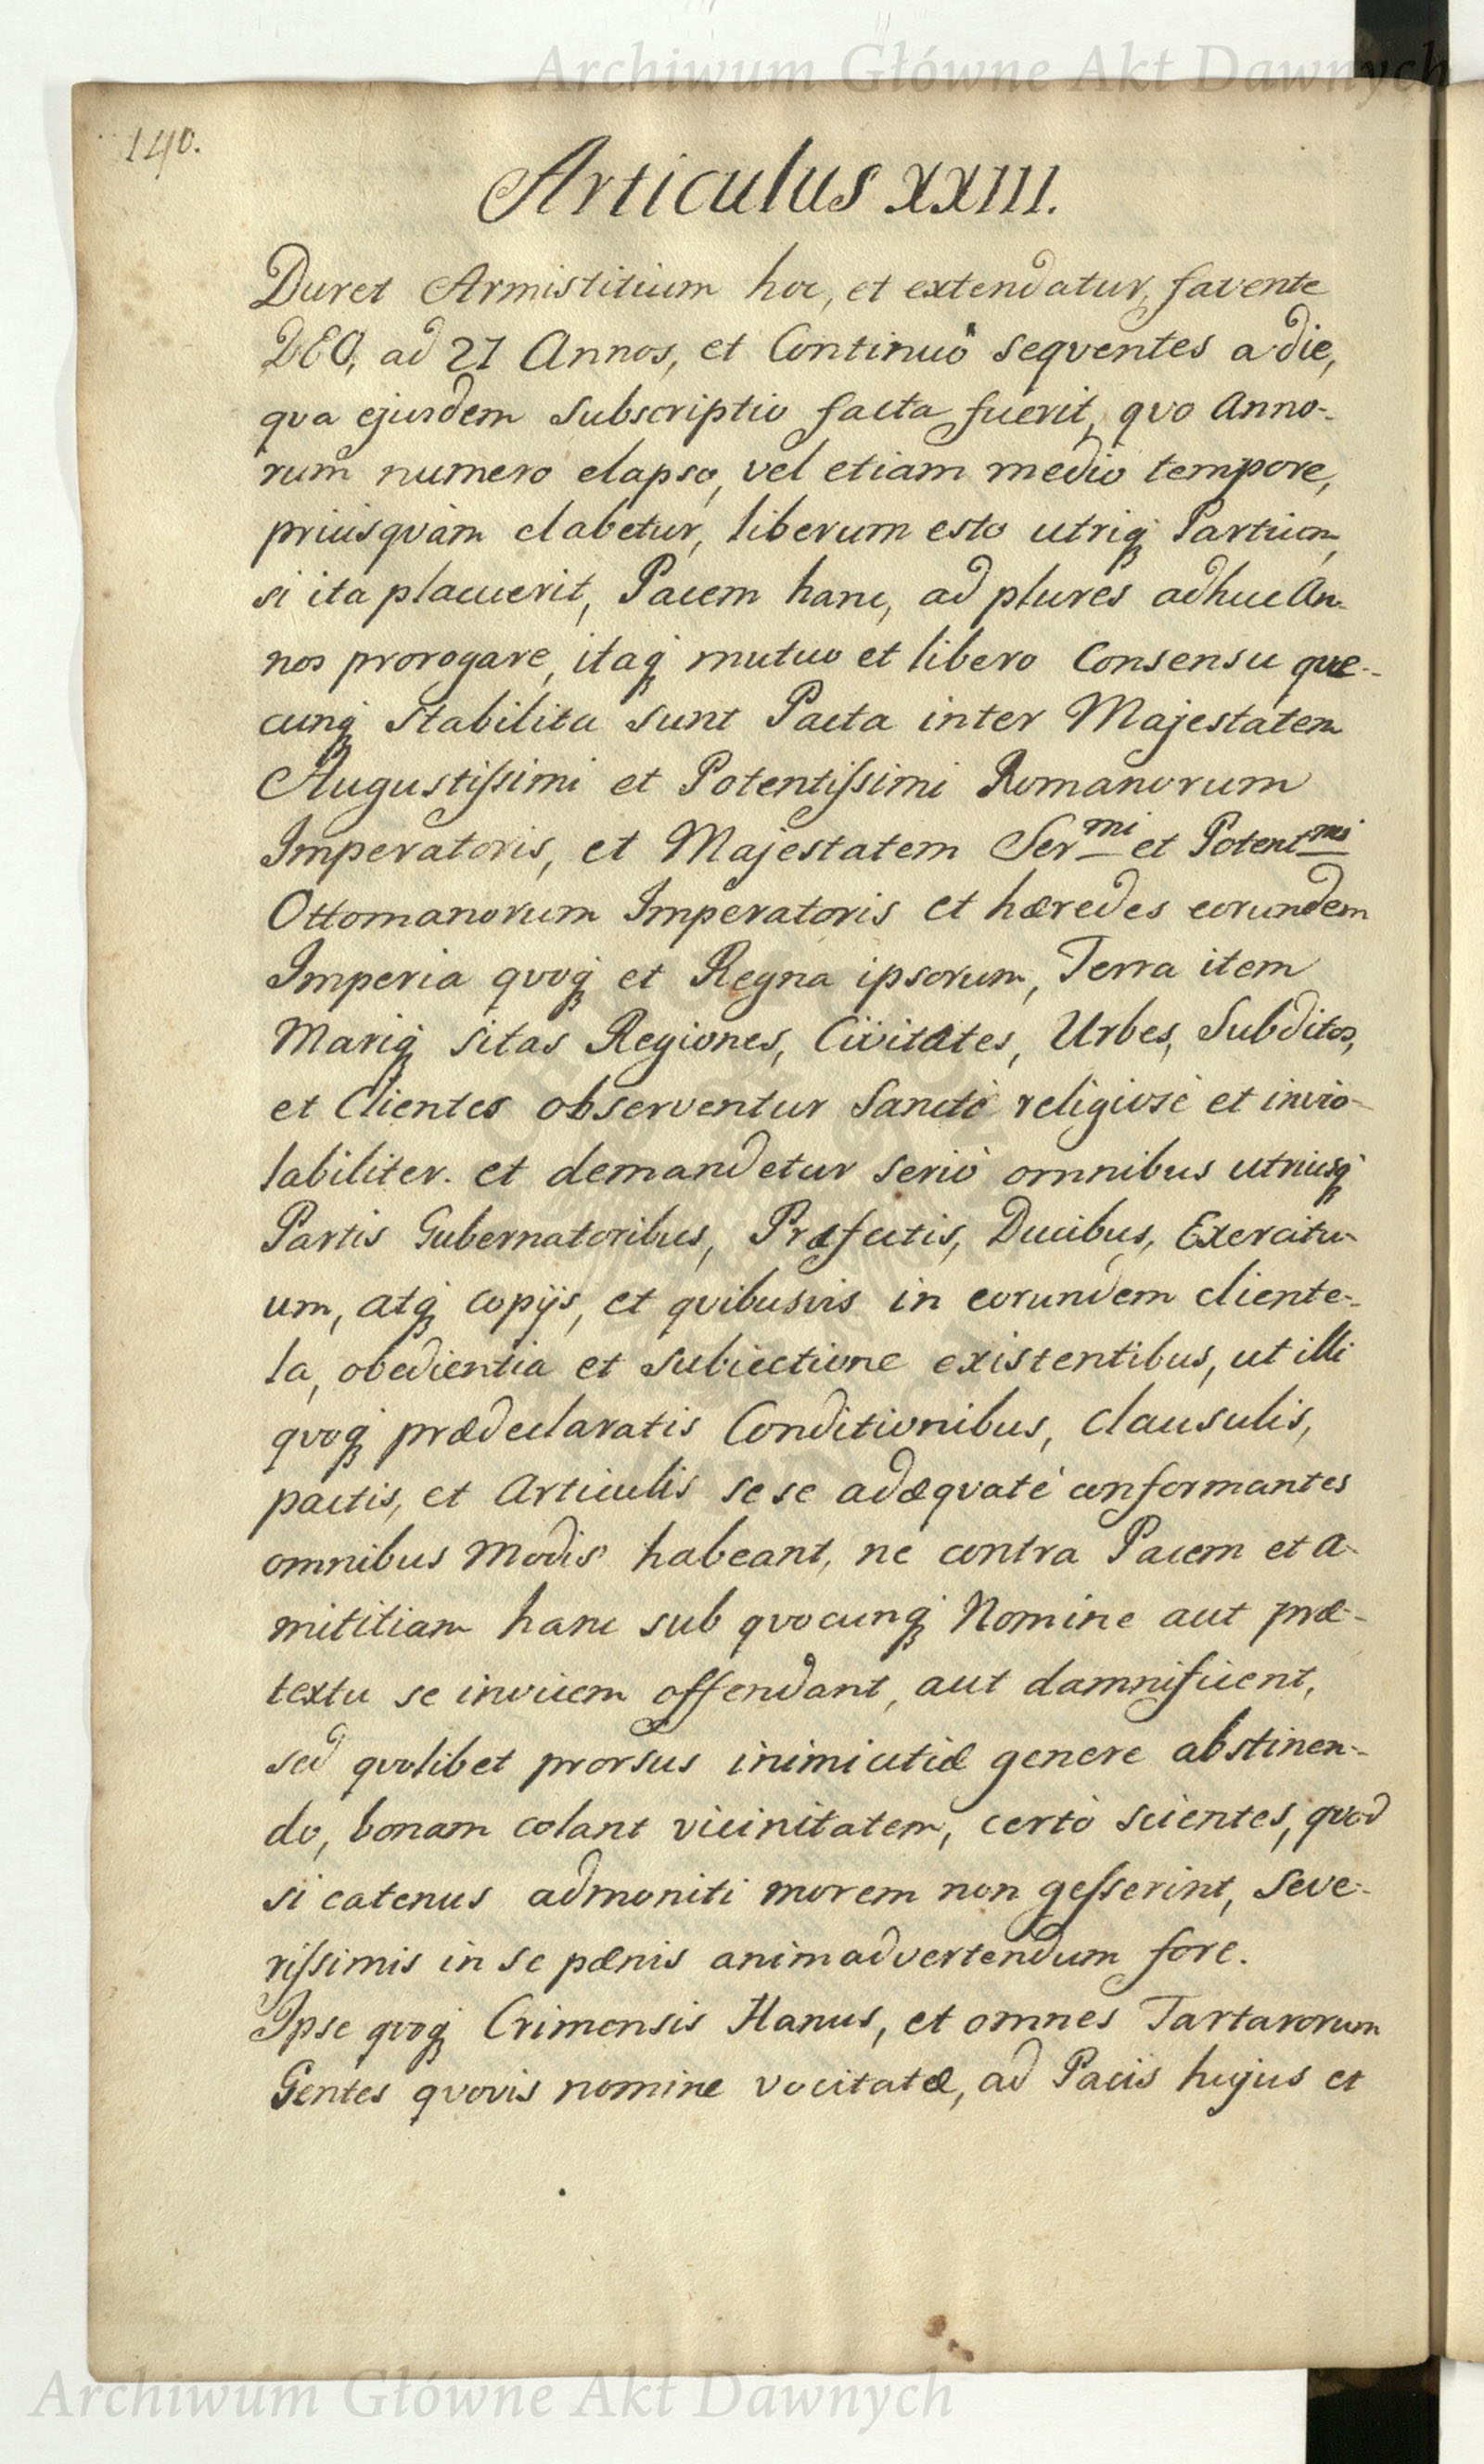 Archiwum Główne Akt Dawnych
140.
Articulus XXIII.
Duret Armistitium hoc, et extendatur, favente
DEO, ad 27 Annos, et Continuò seqventes a die,
qva ejusdem subscriptio facta fuerit, qvo Anno-
rum numero elapso, vel etiam medio tempore,
priusqvàm elabetur, liberum esto utriq; Partium,
si ita placuerit, Pacem hanc, ad plures adhuc An-
nos prorogare, itaq; mutuo et libero Consensu quæ-
cunq; stabilita sunt Pacta inter Majestatem
Augustissimi et Potentissimi Romanorum
Imperatoris, et Majestatem Ser^mi et Potent^mi
Ottomanorum Imperatoris et hæredes eorundem
Imperia qvoq; et Regna ipsorum, Terra item
Mariq; sitas Regiones, Civitates, Urbes, Subditos,
et Clientes observentur Sanctè religiosè et invio-
labiliter. et demandetur seriò omnibus utriusq;
Partis Gubernatoribus, Præfectis, Ducibus, Exercitu-
um, atq; copijs, et qvibusvis in eorundem cliente-
la, obedientia et subiectione existentibus, ut illi
qvoq; prædeclaratis Conditionibus, clausulis,
pactis, et Articulis sese adæqvatè conformantes
omnibus Modis habeant, ne contra Pacem et a-
mititiam hanc sub qvocunq; Nomine aut præ-
textu se invicem offendant, aut damnificent,
sed qvolibet prorsus inimicitiæ genere abstinen-
do, bonam colant vicinitatem, certò scientes, qvod
si catenus admoniti morem non gesserint, seve-
rissimis in se pænis animadvertendum fore.
Ipse qvoq; Crimensis Hanus, et omnes Tartarorum
Gentes qvovis nomine vocitatæ, ad Pacis hujus et
Archiwum Główne Akt Dawnych